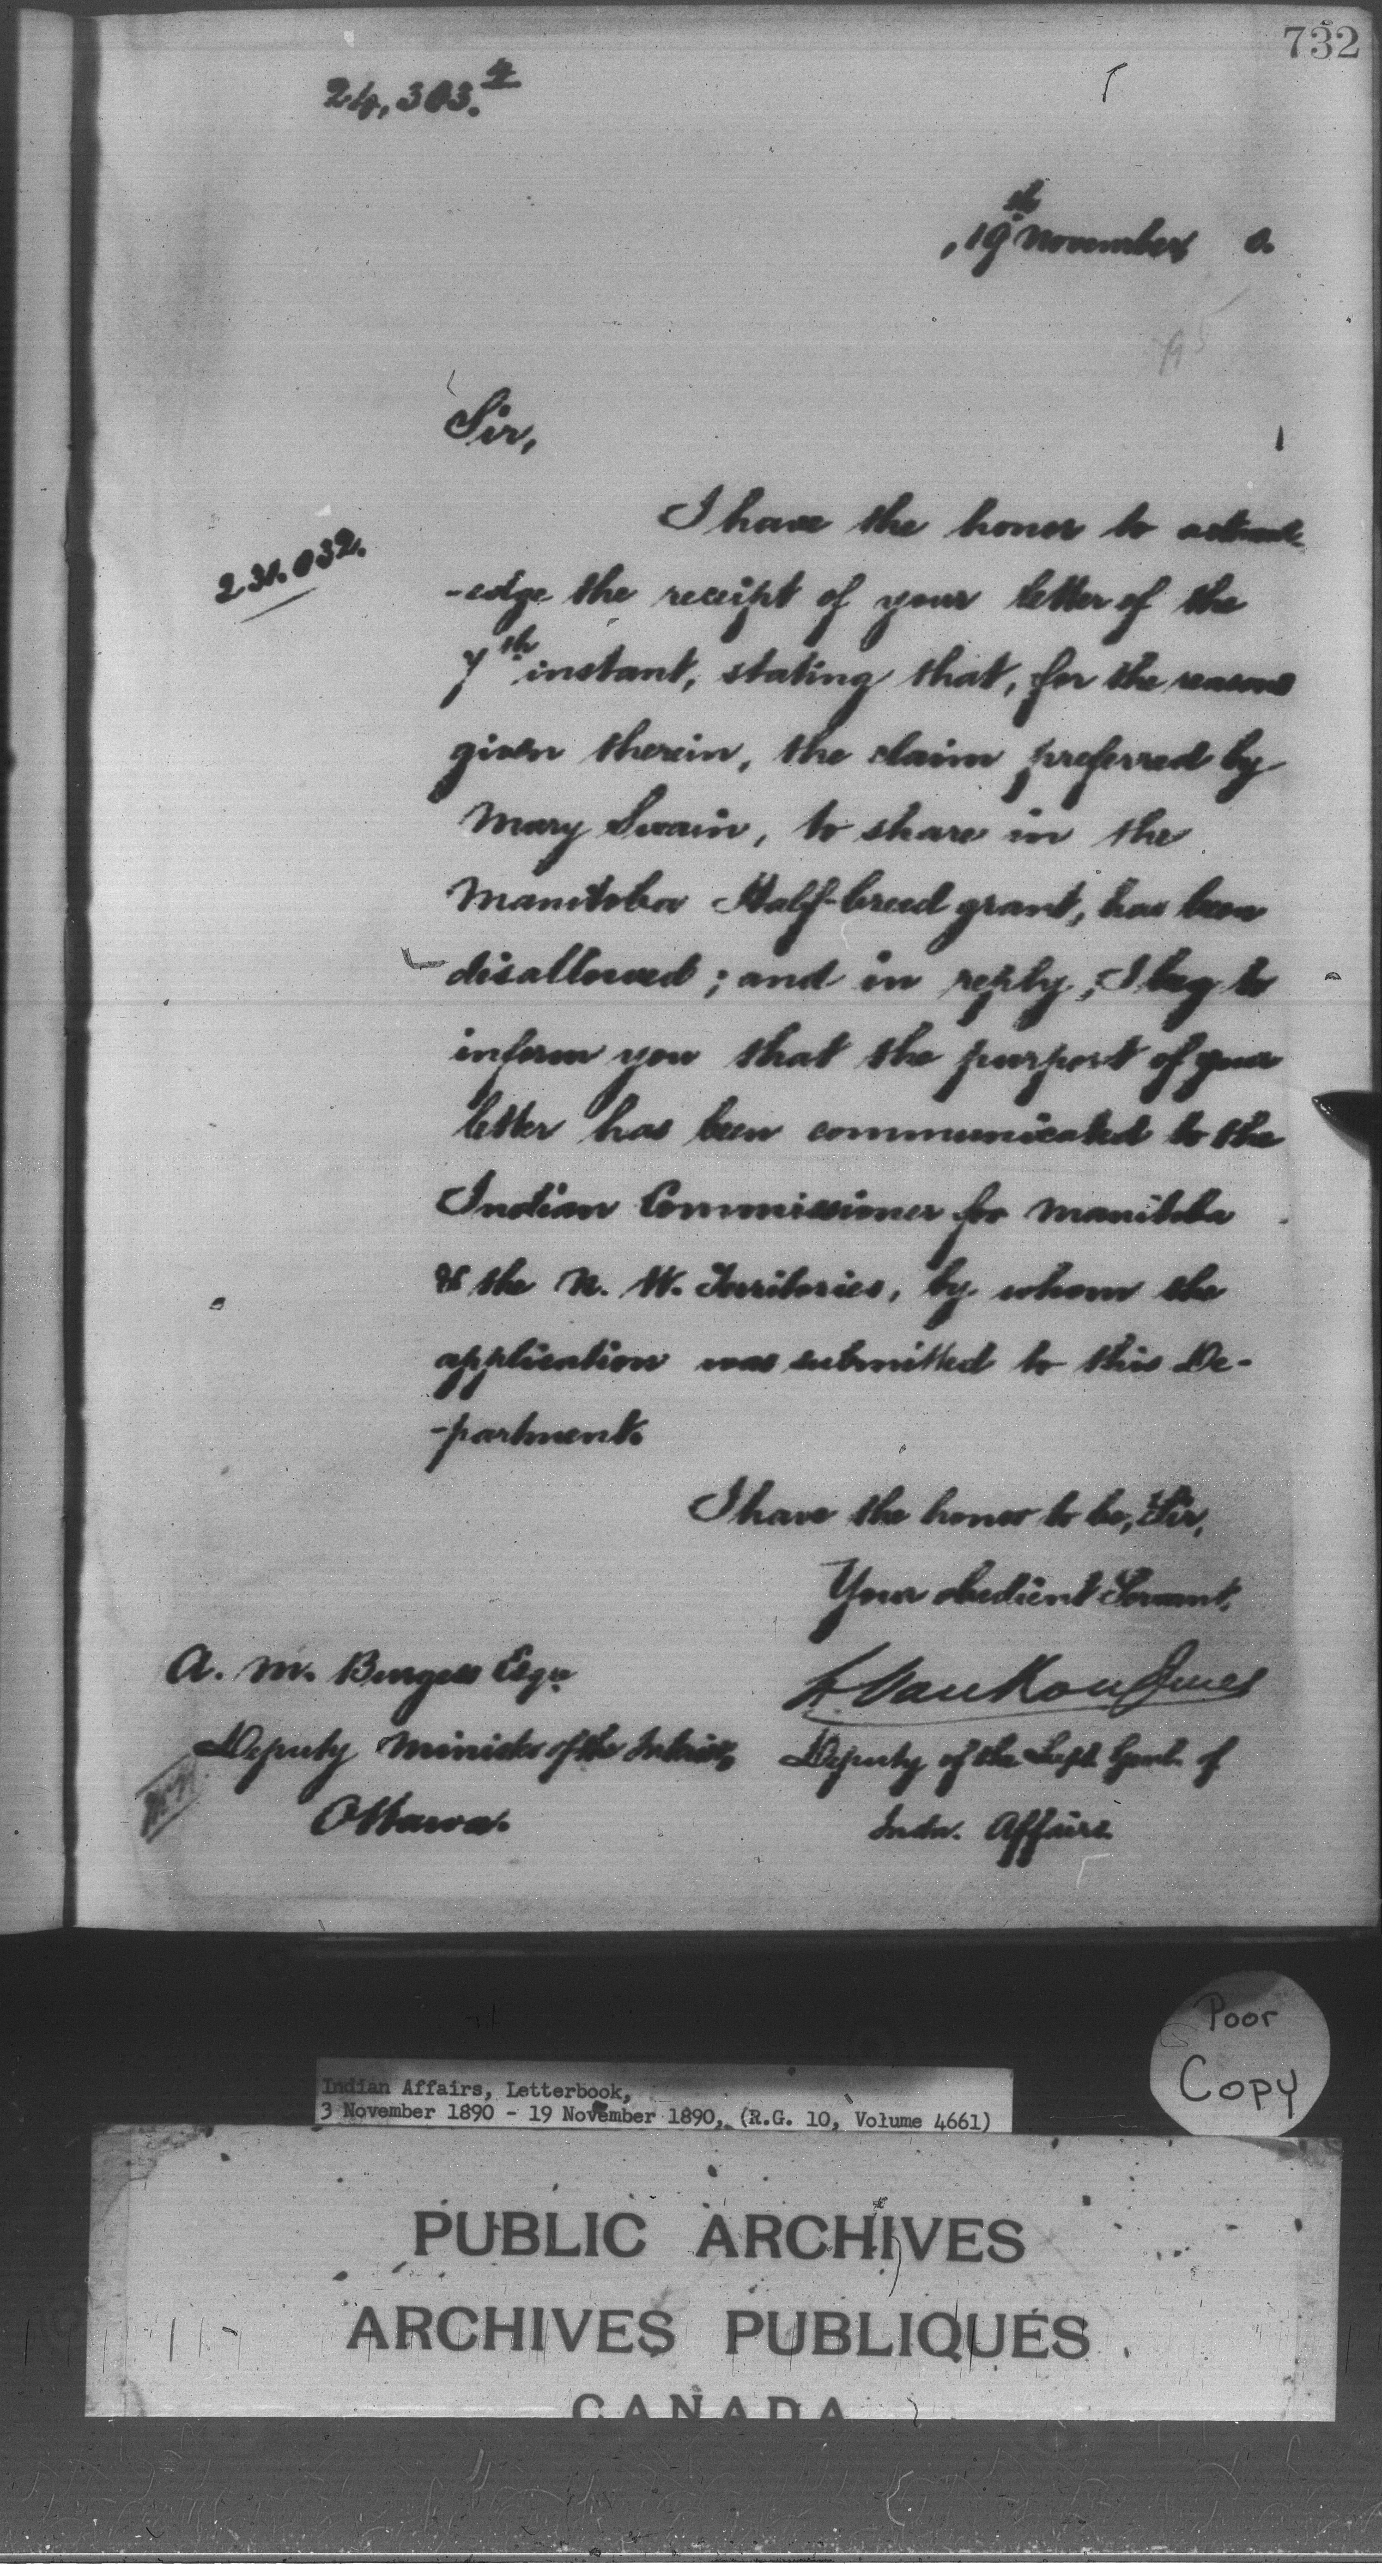 732
24,303.4
19th November 0.
Sir,
I have the honor to acknowl-
231.032.
-edge the receipt of your letter of the
7th instant, stating that, for the reasons
given therein, the claim preferred by
Mary Swain, to share in the
Manitoba Half-breed grant, has been
disallowed; and in reply, I beg to
inform you that the purport of your
letter has been communicated to the
Indian Commissioner for Manitoba
& the N. W. Territories, by whom the
application was submitted to this De-
-partment.
I have the honor to be, Sir,
Your obedient Servant,
A. M. Burgess Esqre
L. Vankoughnet
Deputy Minister of the Interior,
Deputy of the Supt. Genl. of
Ottawa.
Indn. Affairs.
Poor
Copy
Indian Affairs, Letterbook,
3 November 1890 - 19 November 1890, (R.G. 10, Volume 4661)
PUBLIC ARCHIVES
ARCHIVES PUBLIQUES
CANADA